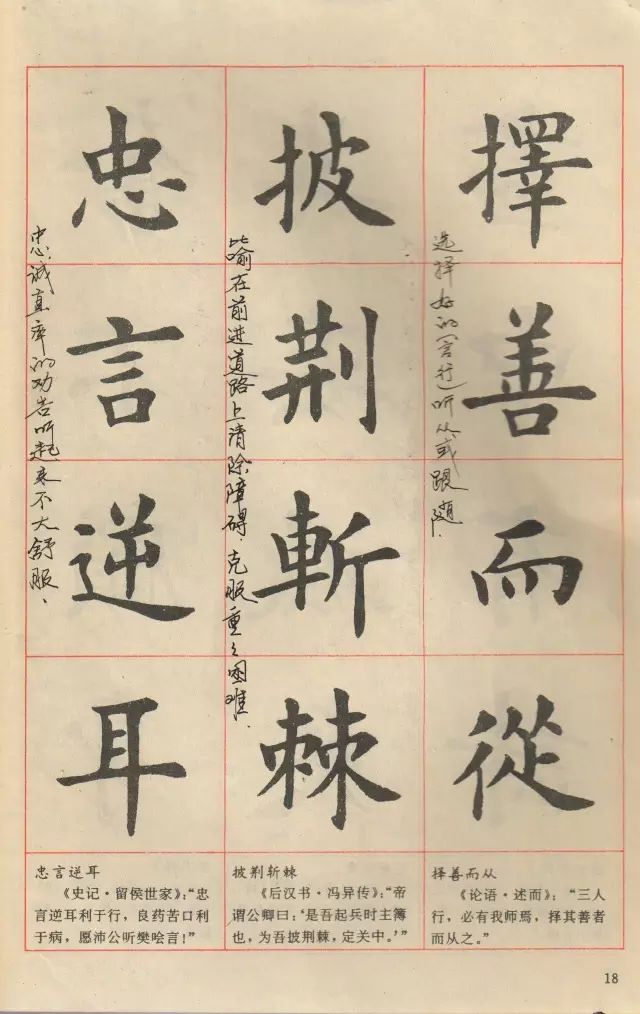 擇善而從
披荆斬棘
忠言逆耳
选择好的(言行)听从或跟随.
比喻在前进道路上清除障碍.克服重々困难.
忠诚直率的劝告听起来不大舒服.
择善而从
《论语·述而》：“三人
行，必有我师焉，择其善者
而从之。”
披荆斩棘
《后汉书·冯异传》：“帝
谓公卿曰：‘是吾起兵时主簿
也，为吾披荆棘，定关中。’”
忠言逆耳
《史记·留侯世家》：“忠
言逆耳利于行，良药苦口利
于病，愿沛公听樊哙言！”
18